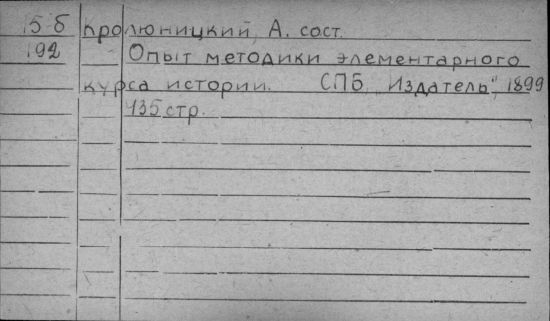 15 б Кролюницкий, А. сост.
192 Опыт методики элементарного
курса истории. СПБ, Издатель", 1899
435 стр.